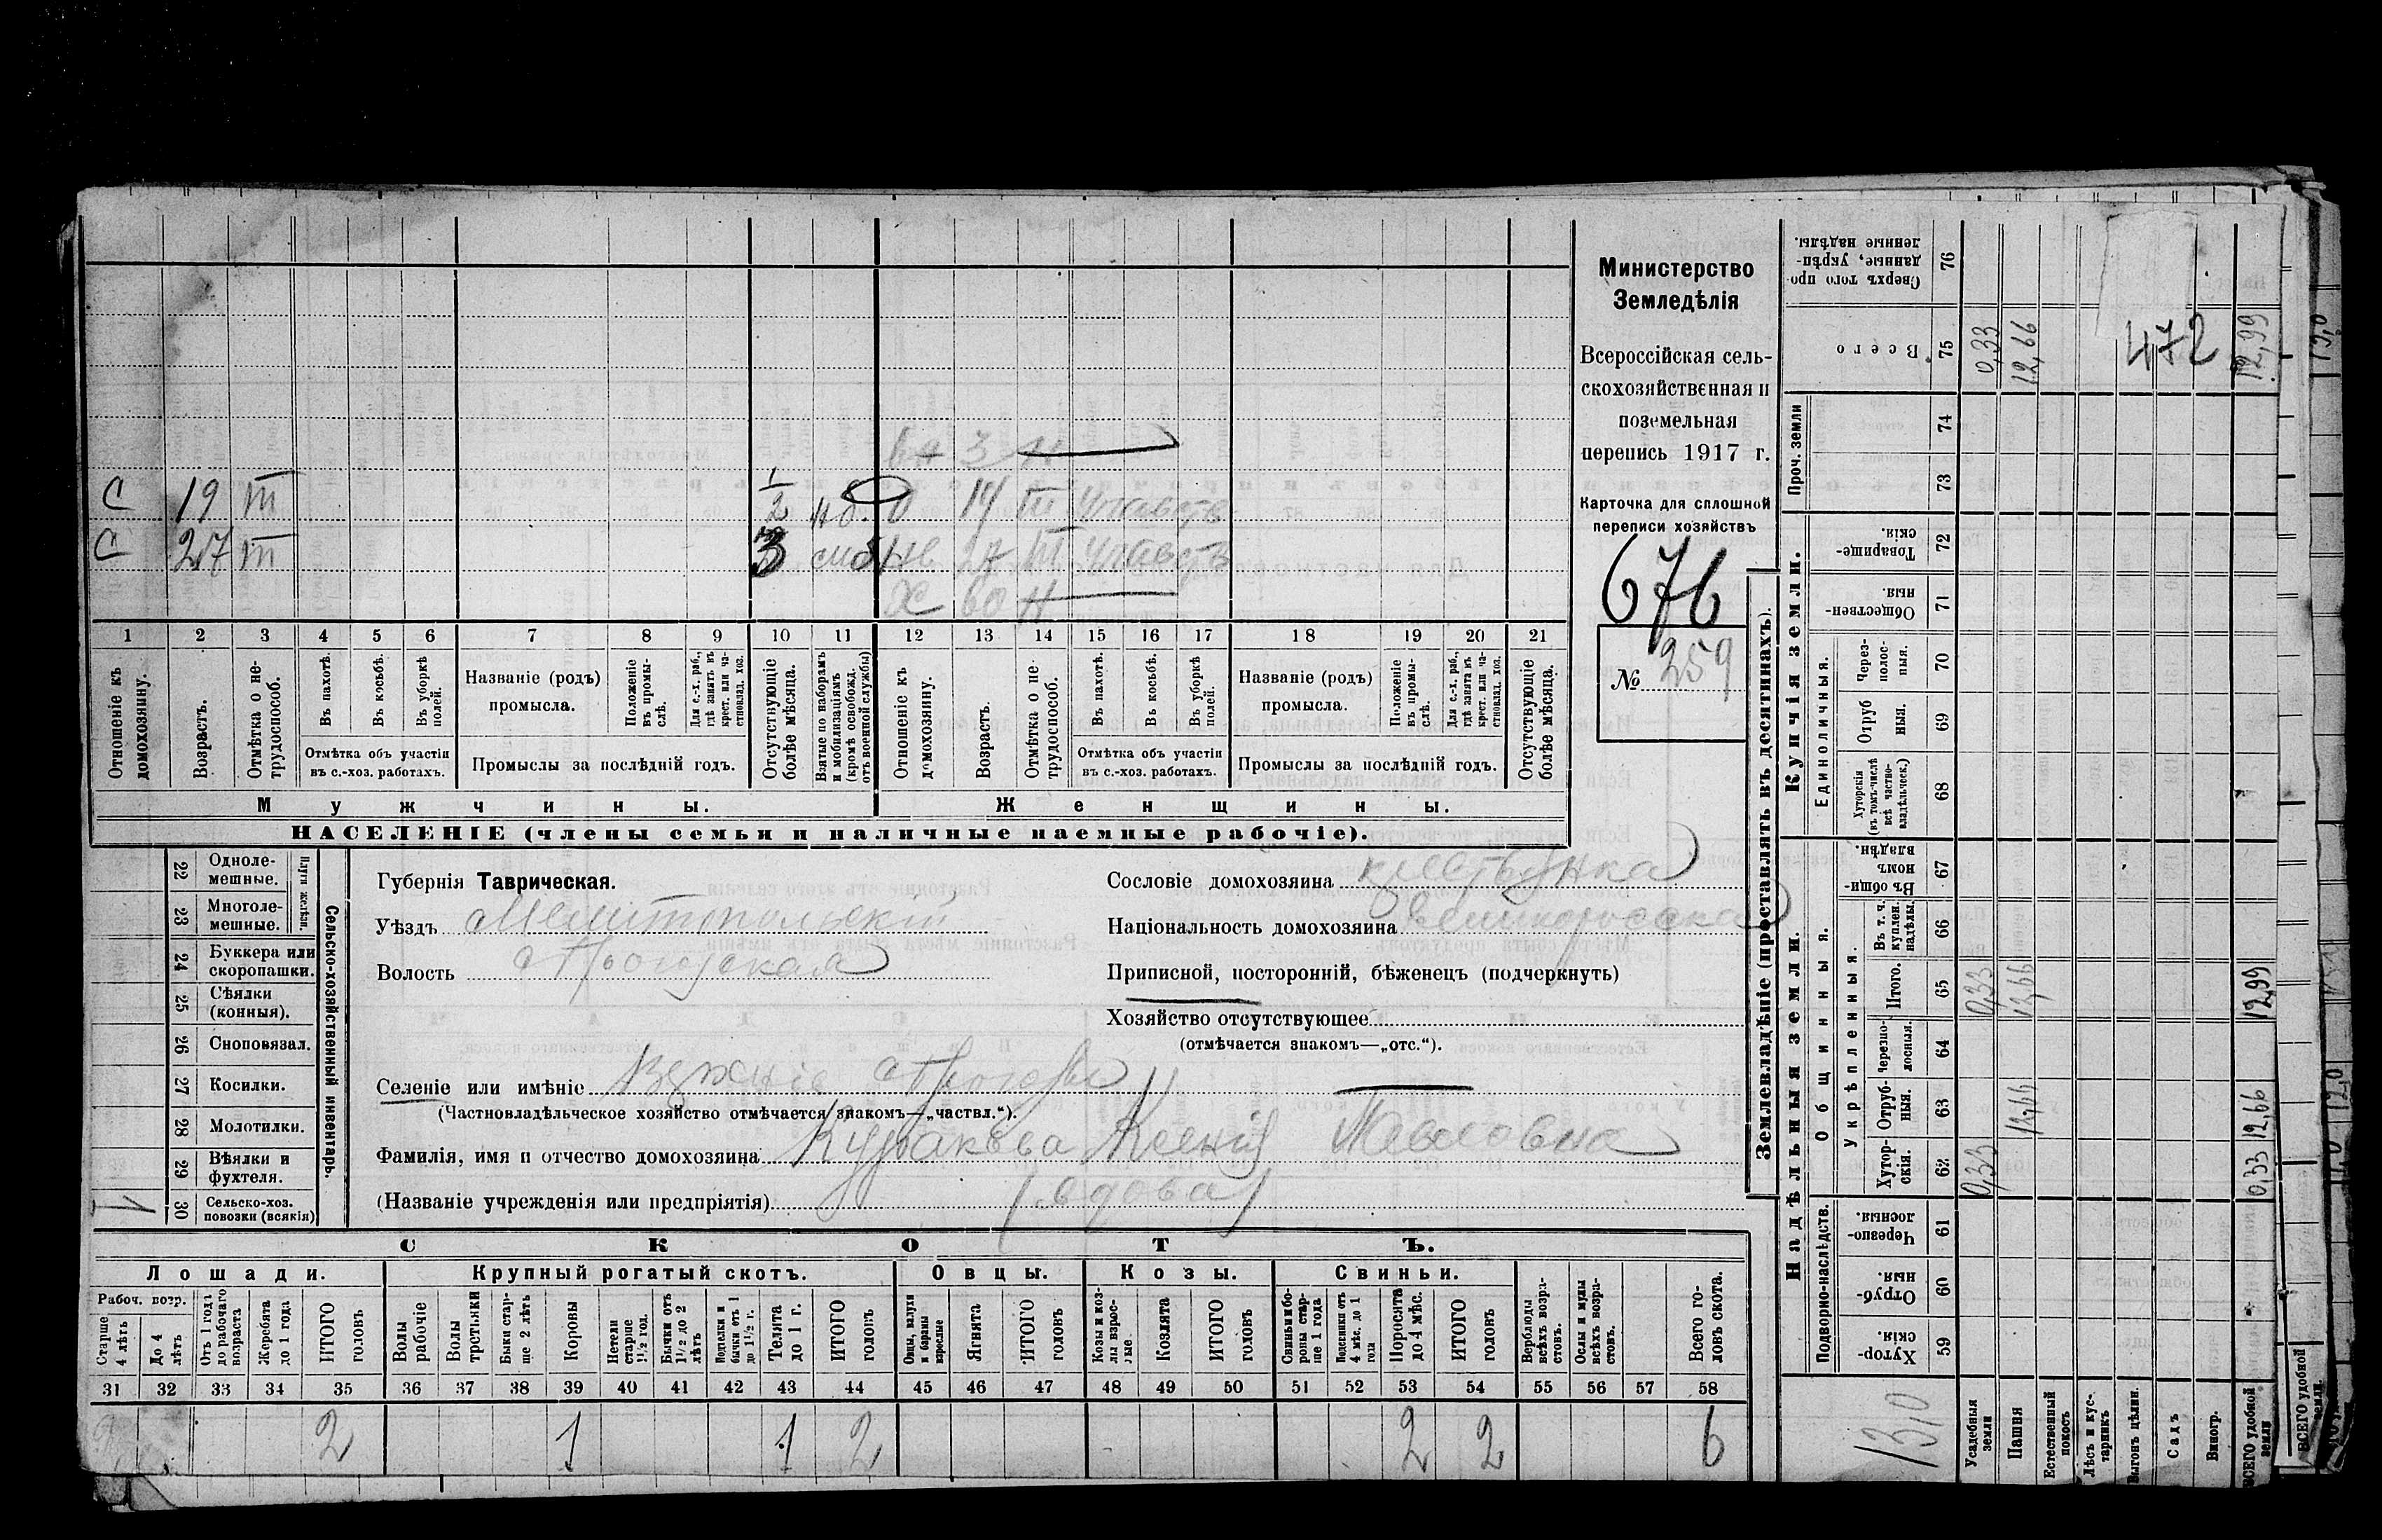 С 19 III
С 27 III
3
III
27 III
Х 60 Н
1 2 3 4 5 6 7 8 9 10 11 12 13 14 15 16 17 18 19 20 21
Отношеніе къ домохозяину.
Возрастъ.
Отмѣтка о не-трудоспособ.
Въ пахотѣ.
Въ косьбѣ.
Въ уборкѣ полей.
Отмѣтка объ участіи въ с.-хоз. работахъ.
Названіе (родъ) промысла.
Положеніе въ промы-слѣ.
Для с.-х. раб., гдѣ занятъ въ крест. или ча-стновлад. хоз.
Промыслы за послѣдній годъ.
Отсутствующіе болѣе мѣсяца.
Взятые по наборамъ и мобилизаціямъ (кромѣ освобожд. отъ военной службы)
Отношеніе къ домохозяину.
Возрастъ.
Отмѣтка о не трудоспособ.
Въ пахотѣ.
Въ косьбѣ.
Въ уборкѣ полей.
Отмѣтка объ участіи въ с.-хоз. работахъ.
Названіе (родъ) промысла.
Положеніе въ промы-слѣ.
Для с.-х. раб., гдѣ занята въ крест. или ча-стновлад. хоз.
Промыслы за послѣдній годъ.
Отсутствующіе болѣе мѣсяца.
Мужчины.
Женщины.
НАСЕЛЕНІЕ (члены семьи и наличные наемные рабочіе).
Министерство
Земледѣлія
Всероссійская сель-
скохозяйственная и
поземельная
перепись 1917 г.
Карточка для сплошной
переписи хозяйствъ
676
№ 259
Сельско-хозяйственный инвентарь.
Плуги желѣзн.
22 Одноле-мешные.
23 Многоле-мешные.
24 Буккера или скоропашки.
25 Сѣялки (конныя).
26 Сноповязал.
27 Косилки.
28 Молотилки.
29 Вѣялки и фухтеля.
30 Сельско-хоз. повозки (всякія)
Губернія Таврическая.
Уѣздъ Мелитопольскій
Волость
Сословіе домохозяина крестьянка
Національность домохозяина великоросска
Приписной, посторонній, бѣженецъ (подчеркнуть)
Хозяйство отсутствующее
(отмѣчается знакомъ—„отс.“).
Селеніе или имѣніе
(Частновладѣльческое хозяйство отмѣчается знакомъ—„частвл.“).
Фамилія, имя и отчество домохозяина Ксенія Павловна
(Названіе учрежденія или предпріятія) (вдова)
СКОТЪ.
Лошади. Крупный рогатый скотъ. Овцы. Козы. Свиньи.
Рабоч. возр.
Старше 4 лѣтъ
До 4 лѣтъ
Отъ 1 года до рабочаго возраста
Жеребята до 1 года
ИТОГО головъ
Волы рабочіе
Волы третьяки
Быки стар-ше 2 лѣтъ
Коровы
Нетели старше 1½ год.
Бычки отъ 1½ до 2 лѣтъ
Подтелки и бычки отъ 1 до 1½ г.
Телята до 1 г.
ИТОГО головъ
Овцы, валухи и бараны взрослые
Ягнята
ИТОГО головъ
Козы и коз-лы взрос-лые
Козлята
ИТОГО головъ
Свиньи и бо-ровы стар-ше 1 года
Подсвинки отъ 4 мѣс. до 1 года
Поросята до 4 мѣс.
ИТОГО головъ
Верблюды всѣхъ возра-стовъ.
Ослы и мулы всѣхъ возра-стовъ.
Всего го-ловъ скота.
31 32 33 34 35 36 37 38 39 40 41 42 43 44 45 46 47 48 49 50 51 52 53 54 55 56 57 58
2 2 1 1 2 2 2 6
Землевладѣніе (проставлять въ десятинахъ).
Купчія земли.
Надѣльныя земли.
Сверхъ того про-данные, укрѣп-ленные надѣлы. 76
Всего 75 0,33 12,66 12,99
472
Проч. земли 74
73
Товарище-скія. 72
Обществен-ныя. 71
Единоличныя.
Через-полос-ныя. 70
Отруб ныя. 69
Хуторскія (въ томъ числѣ всѣ частно-владѣльческ.) 68
Общинныя.
Въ общин-номъ владѣн. 67
Укрѣпленныя.
Въ т. ч. куплен. надѣлы. 66
Итого. 65 0,33 12,66 12,99
Черезпо-лосныя. 64
Отруб-ныя. 63 12,66 12,66
Хутор-скія. 62 0,33 0,33
Подворно-наслѣдств.
Черезпо-лосныя. 61
Отруб-ныя 60
Хутор-скія. 59
13,0
Усадебныя земли
Пашня
Естественный покосъ
Лѣсъ и кус-тарникъ
Выгонъ цѣлин.
Садъ
Виногр.
ВСЕГО удобной земли
ВСЕГО удобной земли.
13,0
12,0